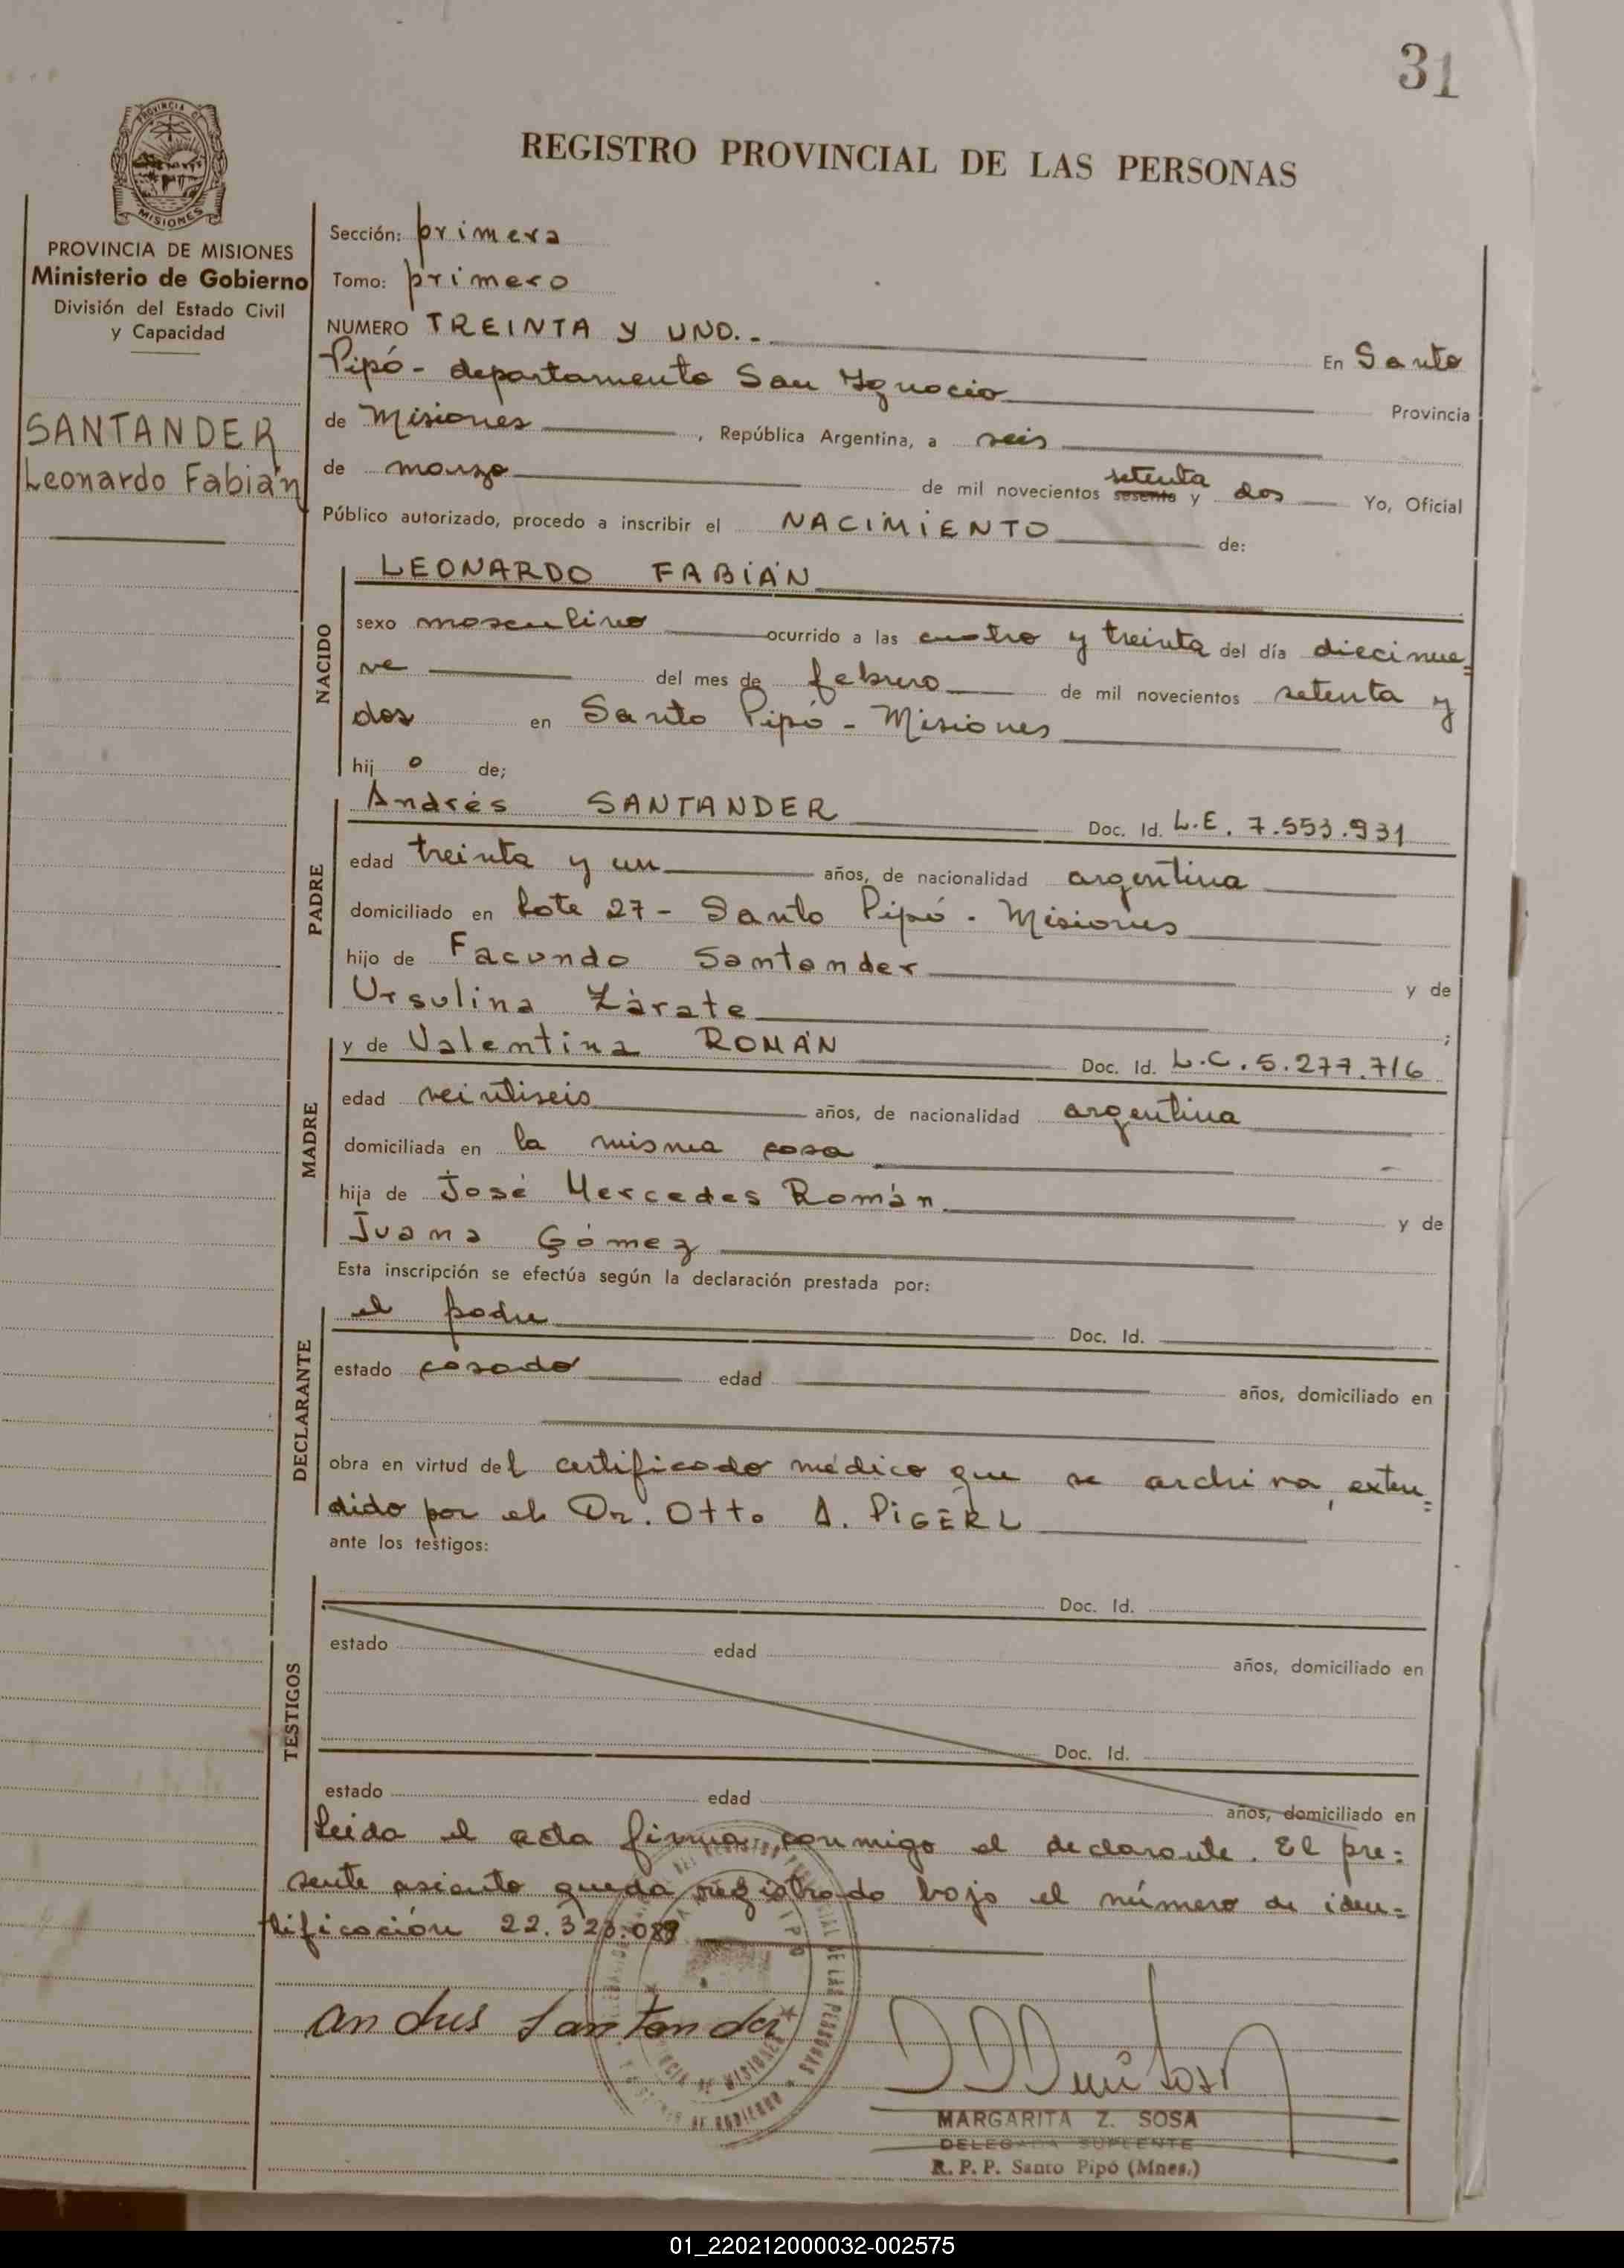 31
REGISTRO PROVINCIAL DE LAS PERSONAS
PROVINCIA DE MISIONES
PROVINCIA DE MISIONES
Ministerio de Gobierno
División del Estado Civil
y Capacidad
SANTANDER
Leonardo Fabián
Sección: primera
Tomo: primero
NUMERO TREINTA Y UNO.- En Santo
Pipó - departamento San Ignacio Provincia
de Misiones, República Argentina, a seis
de marzo de mil novecientos sesenta setenta y dos Yo, Oficial
Público autorizado, procedo a inscribir el NACIMIENTO de:
NACIDO
LEONARDO FABIÁN
sexo masculino ocurrido a las cuatro y treinta del día diecinue=
ve del mes de febrero de mil novecientos setenta y
dos en Santo Pipó - Misiones
hijo de;
PADRE
Andrés SANTANDER Doc. Id. L.E. 7.553.931
edad treinta y un años, de nacionalidad argentina
domiciliado en lote 27 - Santo Pipó - Misiones
hijo de Facundo Santander y de
Ursulina Zárate ;
MADRE
y de Valentina ROMÁN Doc. Id. L.C. 5.277.716
edad veintiseis años, de nacionalidad argentina
domiciliada en la misma casa
hija de José Mercedes Román y de
Juana Gómez
Esta inscripción se efectúa según la declaración prestada por:
DECLARANTE
el padre Doc. Id.
estado casado edad años, domiciliado en
obra en virtud del certificado médico que se archiva, exten=
dido por el Dr. Otto A. PIGERL
ante los testigos:
TESTIGOS
Doc. Id.
estado edad años, domiciliado en
Doc. Id.
estado edad años, domiciliado en
Leida el acta firma conmigo el declarante. El pre=
sente asiento queda registrado bajo el número de iden=
tificación 22.323.089
Andres Santander
MARGARITA Z. SOSA
DELEGADA SUPLENTE
R. P. P. Santo Pipó (Mnes.)
01_220212000032-002575